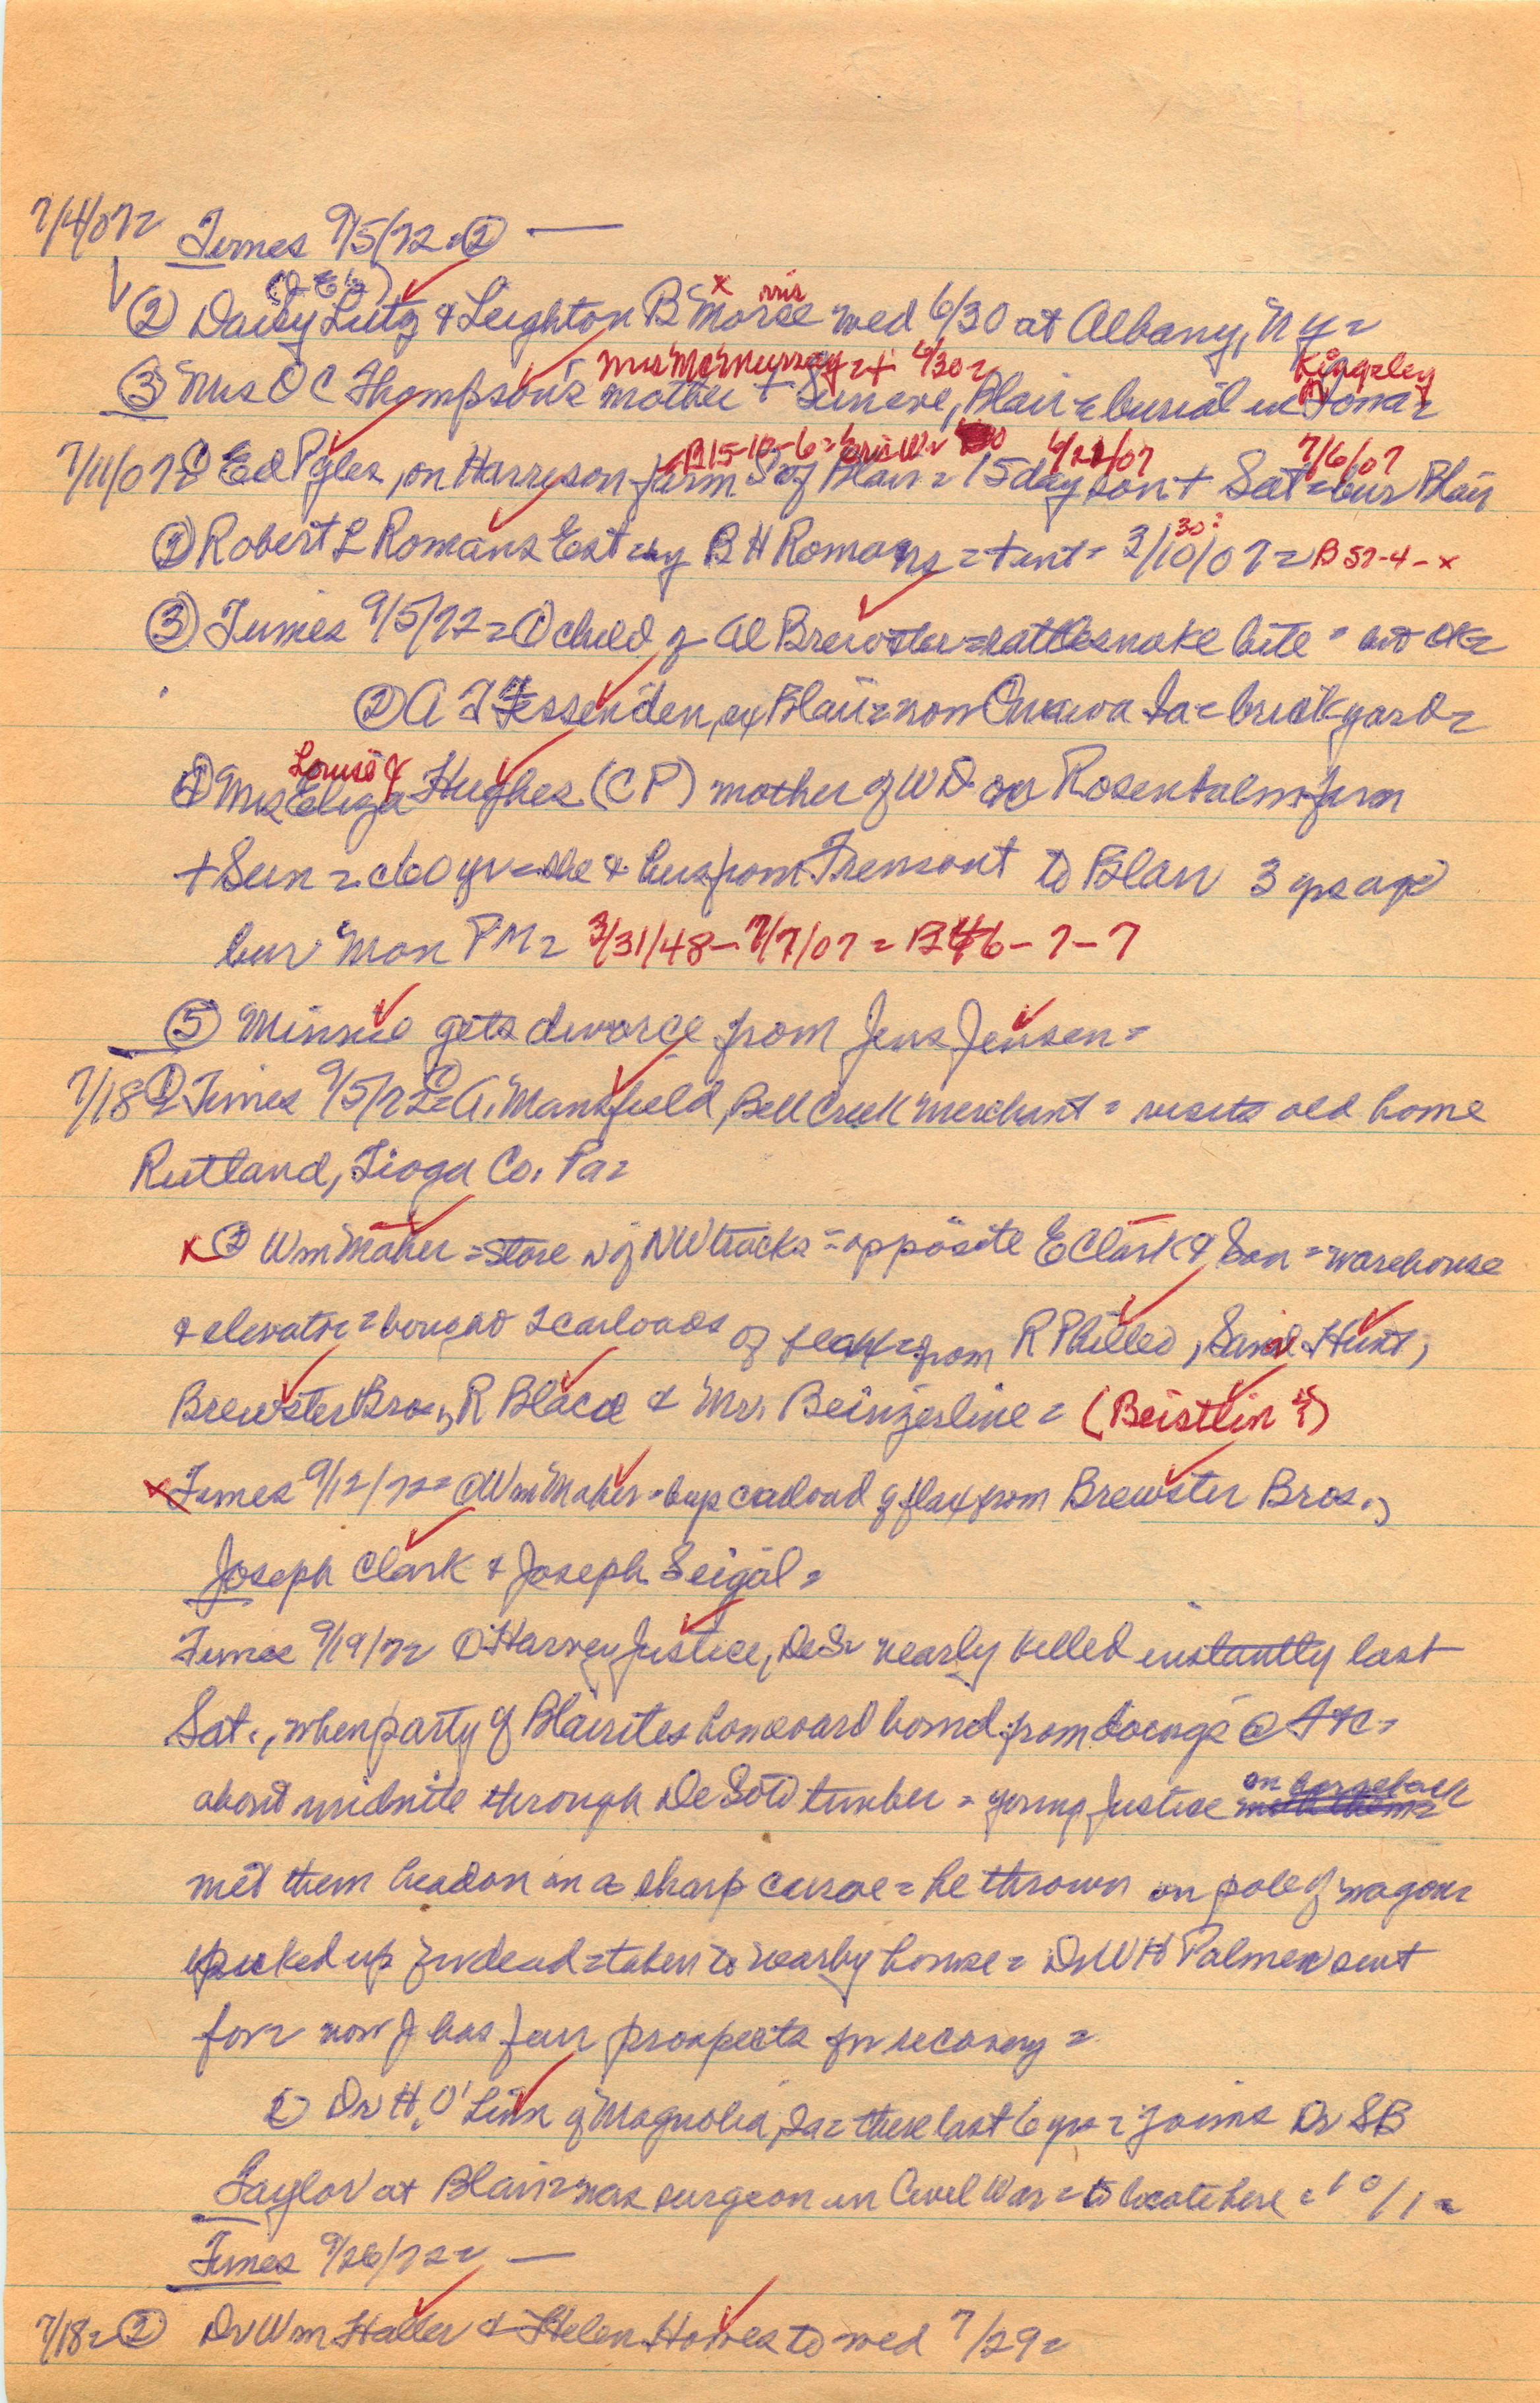 7/4/07= Times 9/5/72=② —
② Daisy Lutz & Leighton B Morse wed 6/30 at Albany, NY=
x rris
Mrs McMurray=+ 6/30= Kingsley
③ Mrs O C Thompson's mother + Sun eve, Blair = burial in Iowa=
B15-10-6= 6/21/07 7/6/07
7/11/07= ① Ed Pyles, on Harrison farm S of Blair = 15 day son + Sat = bur Blair
30?
② Robert L Romans Est = by B H Romans = + int = 3/10/07 = B 52-4-x
③ Times 9/5/72 = ① child of Al Brewster = rattlesnake bite = but OK=
② A T Fessenden, ex Blair = now Onawa Ia = brick yard=
Louise J
④ Mrs Eliza Hughes (C P) mother of W D on Rosenbalm farm
+ Sun = c60 yr = she & hus from Fremont to Blair 3 yrs ago
bur Mon PM = 3/31/48 – 7/7/07 = B46-7-7
⑤ Minnie gets divorce from Jens Jensen =
7/18 ① = Times 9/5/72 = ① A. Mansfield, Bell Creek merchant = visits old home
Rutland, Tioga Co. Pa=
x ② Wm Maher = store N of NW tracks = opposite E Clark & Son = warehouse
& elevator = bought 2 carloads of flax = from R Philled, Saml Hunt,
Brewster Bros, R Blaco & Mrs. Beinzerline = (Beistlin ?)
x Times 9/12/72 = ① Wm Maher = buys carload of flax from Brewster Bros.,
Joseph Clark & Joseph Seigal =
Times 9/19/72 ① Harvey Justice, DeS= nearly killed instantly last
Sat., when party of Blairites homeward bound from doings @ Ft C =
about midnite through De Soto timber = young Justice on horseback
met them head on on a sharp curve = he thrown on pole of wagon=
picked up for dead = taken to nearby house = Dr W H Palmer sent
for = now J has fair prospects for recovery =
② Dr H. O' Linn of Magnolia, Ia = there last 6 yrs = joins Dr S B
Taylor at Blair = was surgeon in Civil War = to locate here = 10/1 =
Times 9/26/72 = —
7/18 = ② Dr Wm Haller & Helen Howes to wed 7/29=